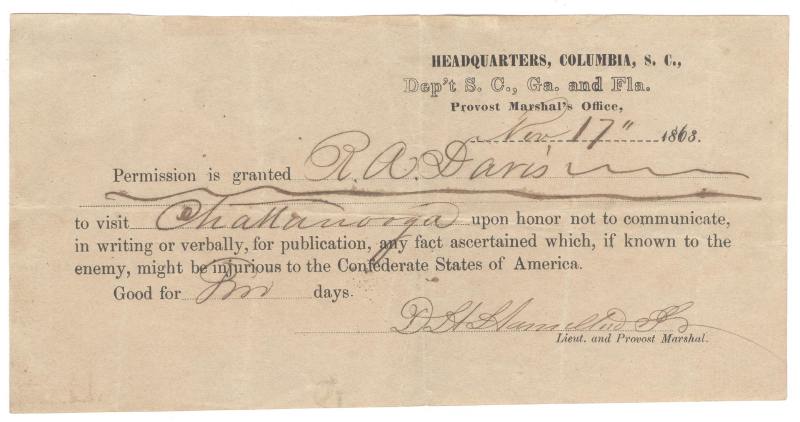 HEADQUARTERS, COLUMBIA, S. C.,
Dep't S. C., Ga. and Fla.
Provost Marshal's Office,
Nov 17" 1863.
Permission is granted R. A. Davis
to visit Chattanooga upon honor not to communicate,
in writing or verbally, for publication, any fact ascertained which, if known to the
enemy, might be injurious to the Confederate States of America.
Good for days.
D. H. Hamilton Jr
Lieut. and Provost Marshal.